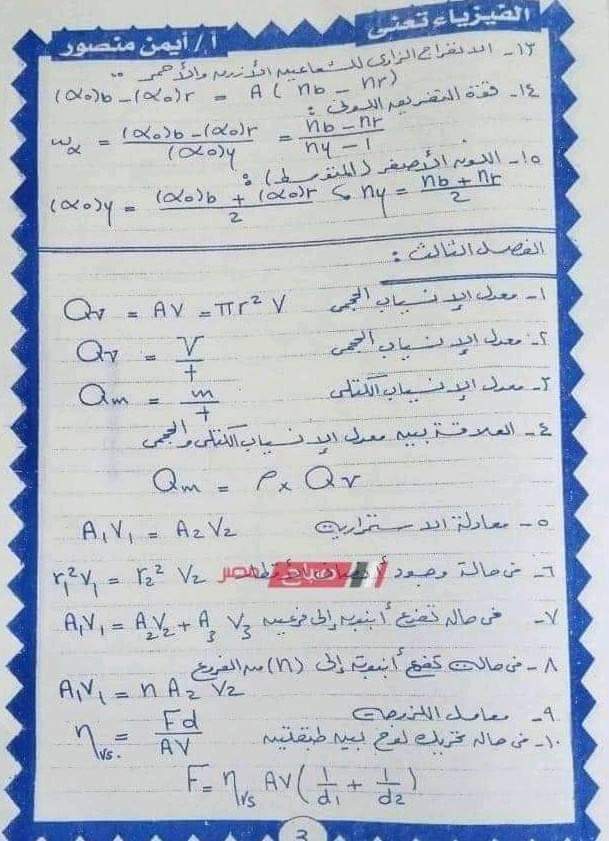 الفيزياء تعنى
أ / أيمن منصور
١٣- الانفراج الزاوى للشعاعين الأزرق والأحمر
(α₀)b - (α₀)r = A (nb - nr)
١٤- قوة التفريق اللونى :
ωα = ((α₀)b - (α₀)r) / (α₀)y = (nb - nr) / (ny - 1)
١٥- اللون الأصفر (المتوسط) :
(α₀)y = ((α₀)b + (α₀)r) / 2 ، ny = (nb + nr) / 2
الفصل الثالث :
١- معدل الإنسياب الحجمى Qv = AV = πr² V
٢- معدل الإنسياب الحجمى Qv = V / t
٣- معدل الإنسياب الكتلى Qm = m / t
٤- العلاقة بين معدل الإنسياب الكتلى والحجمى
Qm = ρ x Qv
٥- معادلة الاستمرارية A₁V₁ = A₂V₂
٦- فى حالة وجود أنصاف الأقطار r₁² V₁ = r₂² V₂
صباح مصر
٧- فى حالة تفرع أنبوبة إلى فرعين A₁V₁ = A₂V₂ + A₃ V₃
٨- فى حالة تفرع أنبوبة إلى (n) من الفروع
A₁V₁ = n A₂ V₂
٩- معامل اللزوجة ηvs. = Fd / AV
١٠- فى حالة تحريك لوح بين طبقتين
F = ηvs AV (1/d₁ + 1/d₂)
3